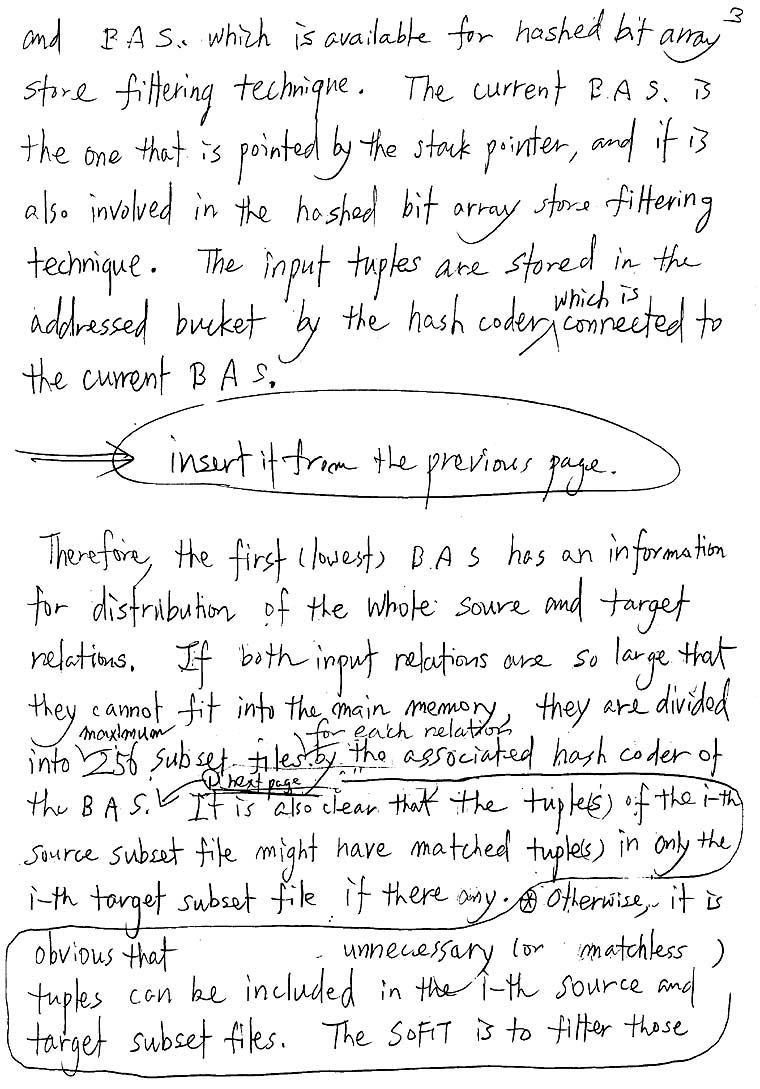 3
and B A S. which is available for hashed bit array
store filtering technique. The current B.A S. is
the one that is pointed by the stack pointer, and it is
also involved in the hashed bit array store filtering
technique. The input tuples are stored in the
which is
addressed bucket by the hash coder, connected to
the current B A S.
insert it from the previous page.
Therefore, the first (lowest) B.A S has an information
for distribution of the whole soure and target
relations. If both input relations are so large that
they cannot fit into the main memory, they are divided
maximum for each relation
into 256 subset files by the associated hash coder of
1 next page
the B A S. It is also clear that the tuple(s) of the i-th
source subset file might have matched tuple(s) in only the
i-th target subset file if there any. * Otherwise, it is
obvious that unnecessary (or matchless)
tuples can be included in the i-th source and
target subset files. The SOFIT is to filter those